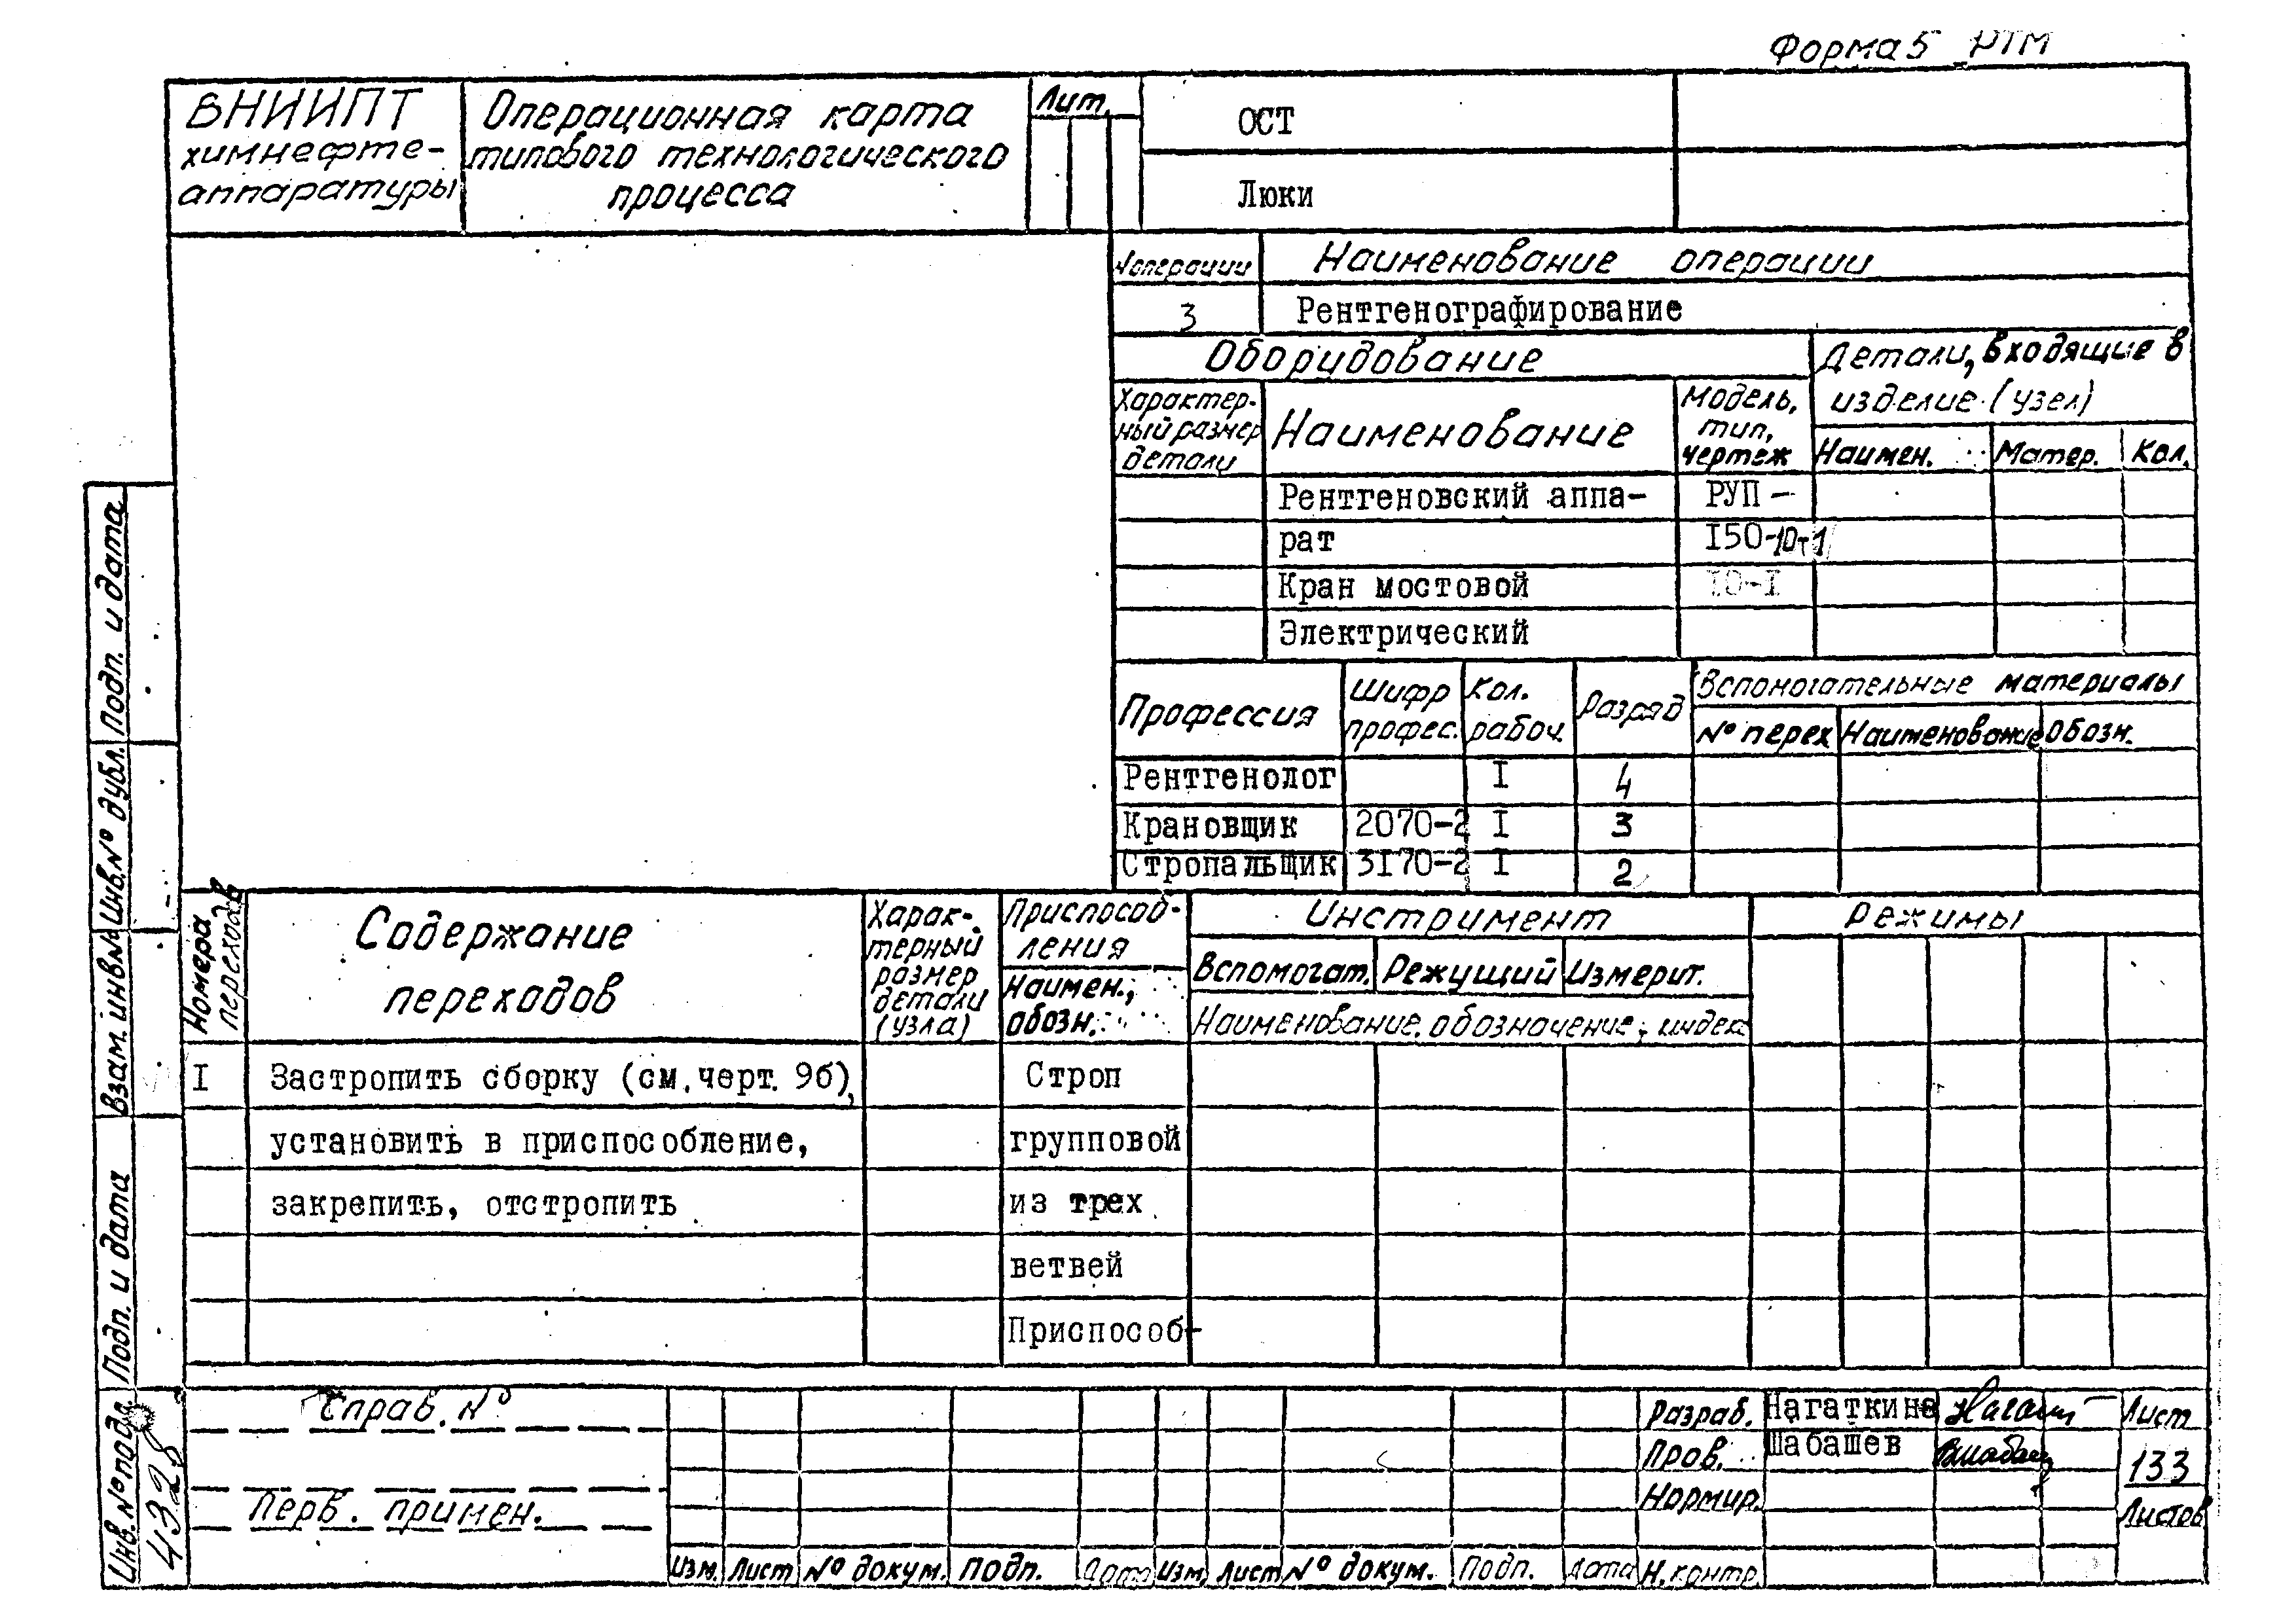 Форма 5 РТМ
ВНИИПТ
химнефте-
аппаратуры
Операционная карта
типового технологического
процесса
Лит.
ОСТ
Люки
№операции
Наименование операции
3
Рентгенографирование
Оборудование
Детали, входящие в
изделие (узел)
Характер-
ный размер
детали
Наименование
Модель,
тип,
чертеж
Наимен.
Матер.
Кол.
Рентгеновский аппа-
РУП -
рат
I50-10-1
Кран мостовой
10-I
Электрический
Профессия
Шифр
профес.
Кол.
рабоч.
Разряд
Вспомогательные материалы
№ перех
Наименование
Обозн.
Рентгенолог I 4
Крановщик 2070-2 I 3
Стропальщик 3I70-2 I 2
Номера
переходов
Содержание
переходов
Харак-
терный
размер
детали
(узла)
Приспособ-
ления
Наимен.,
обозн.
Инструмент
Вспомогат.
Режущий
Измерит.
Наименование, обозначение, индекс
Режимы
I Застропить сборку (см.черт. 9б), Строп
установить в приспособление, групповой
закрепить, отстропить из трех
ветвей
Приспособ-
Справ. №
Перв. примен.
Изм. Лист № докум. Подп. Дата Изм. Лист № докум. Подп. Дата
Разраб. Нагаткина
Пров. Шабашев
Нормир.
Н.контр.
Лист
133
Листов
Подп. и дата
Инв.№ дубл.
Взам. инв.№
Подп. и дата
Инв. № подл.
4328